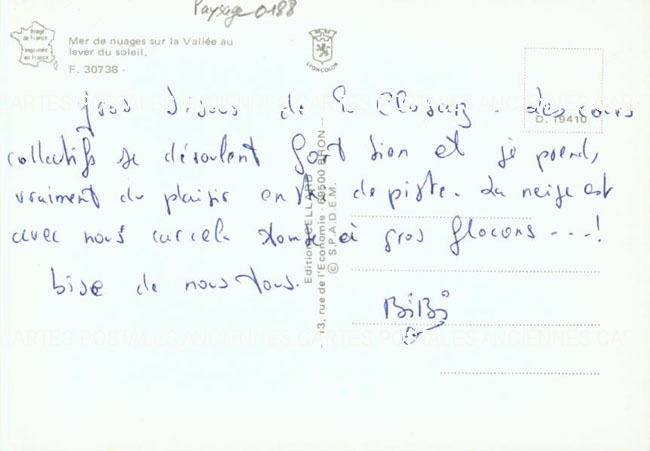 Paysage 0188
Image de France
imprimée en France
Mer de nuages sur la Vallée au
lever du soleil.
F. 30738 -
LYONCOLOR
D. 19410
gros bisous de la Clusaz. des cours
collectifs se déroulent fort bien et je prends
vraiment du plaisir de piste. La neige est
avec nous car cela tombe à gros flocons ---!
bise de nous tous.
BiBi
Editions CELLARD
— 13, rue de l'Economie - 69500 BRON —
© S.P.A.D.E.M.
CARTES POSTALES ANCIENNES CARTES POSTALES ANCIENNES CAR
CARTES POSTALES ANCIENNES CARTES POSTALES ANCIENNES CAR